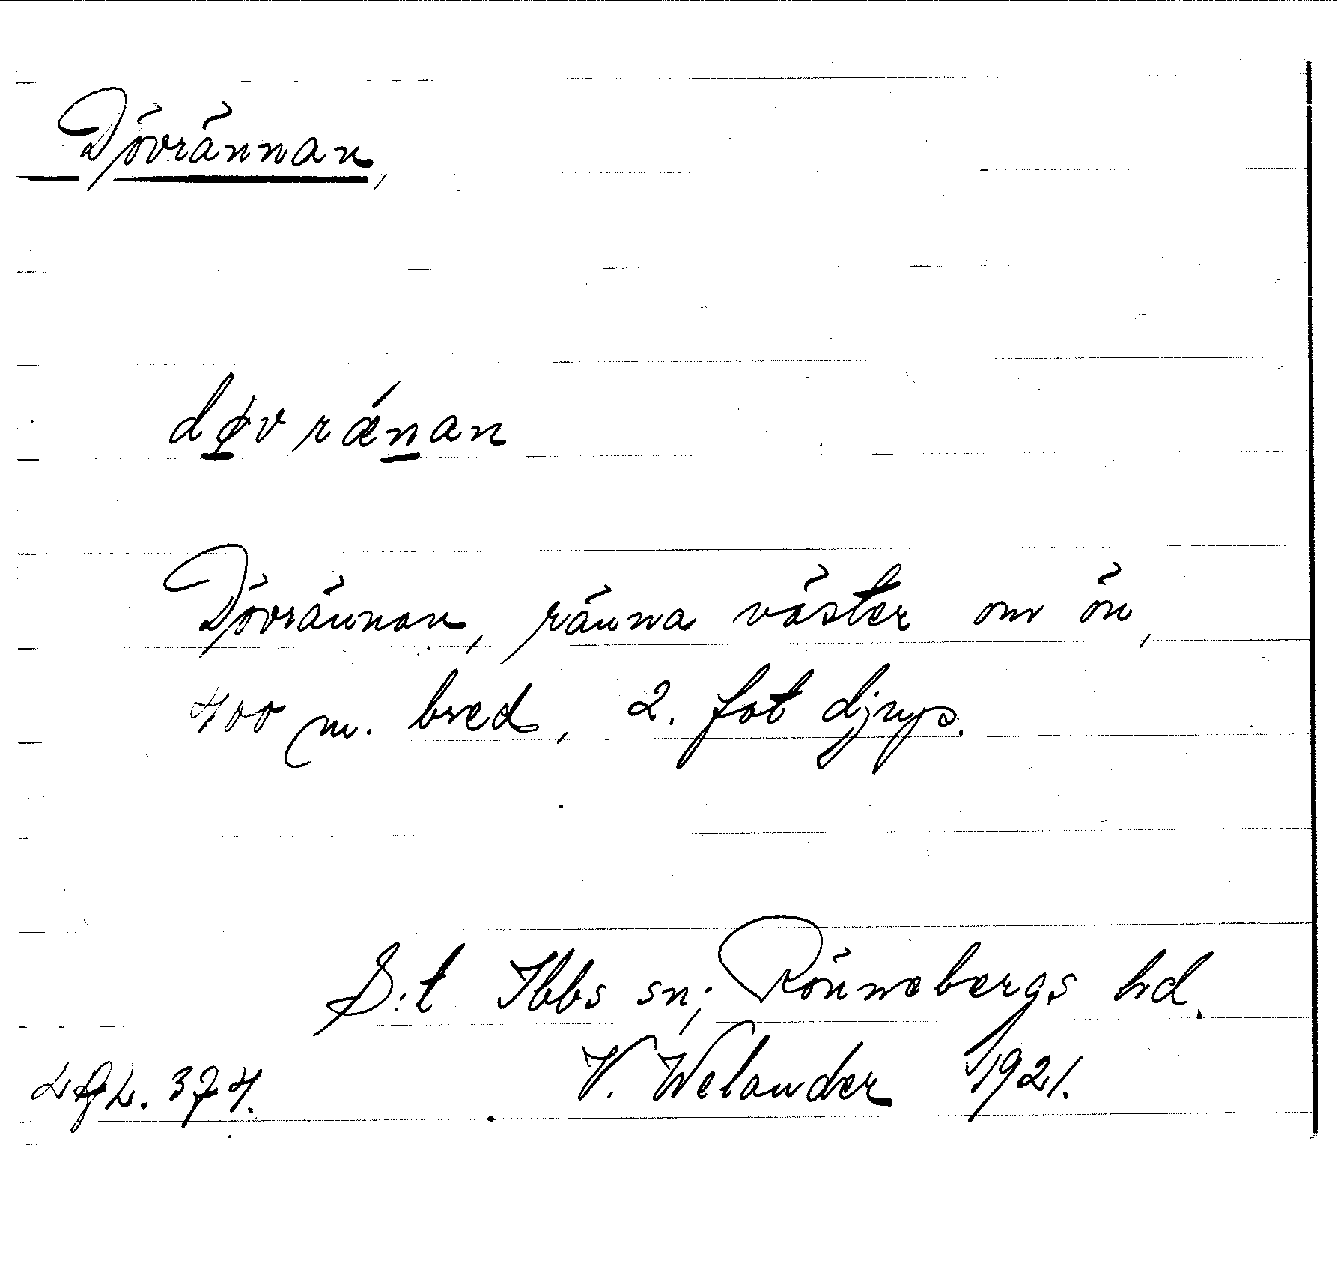 Dövrännan,
døvrǽnan
Dövrännan, ränna väster om ön,
400 m. bred, 2. fot djup.
S:t Ibbs sn; Rönnebergs hd.
V. Welander 1921.
374.